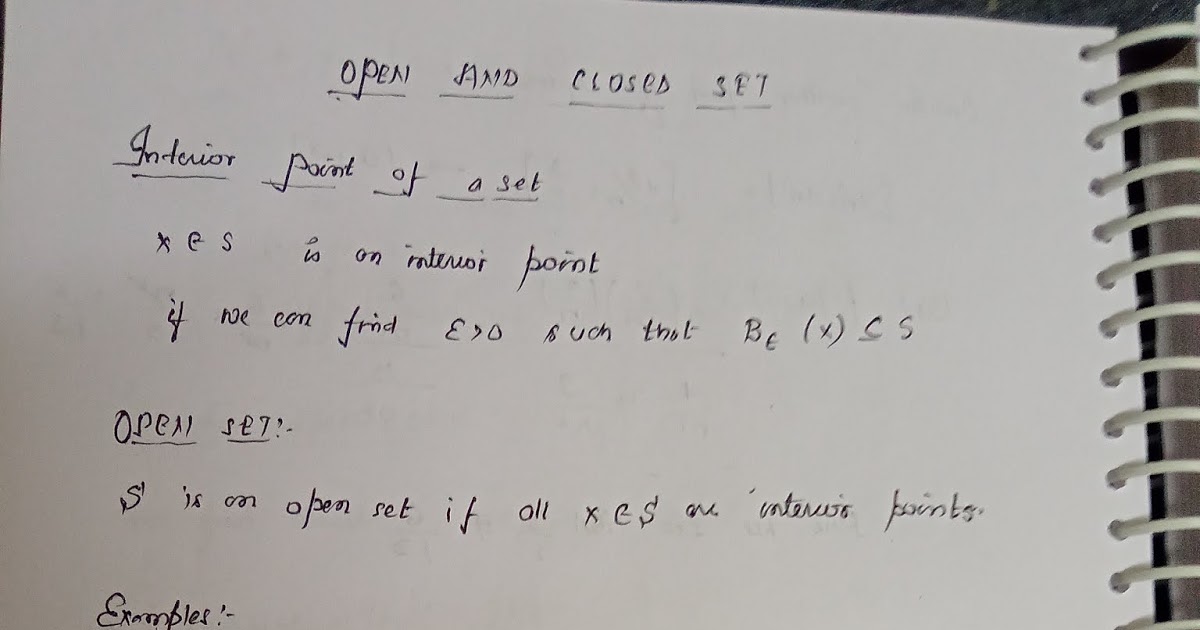 OPEN AND CLOSED SET
Interior point of a set
x ∈ S is an interior point
if we can find ε>0 such that Bε (x) ⊆ S
OPEN SET:-
S is an open set if all x ∈ S are interior points.
Examples:-